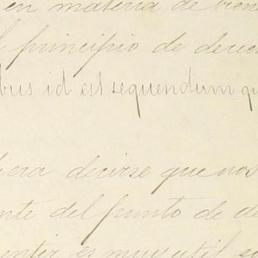 en materia de bien
l principio de derec
bus id est sequendum qu
iera decirse que nos
nte del punto de de
entir es muy util en